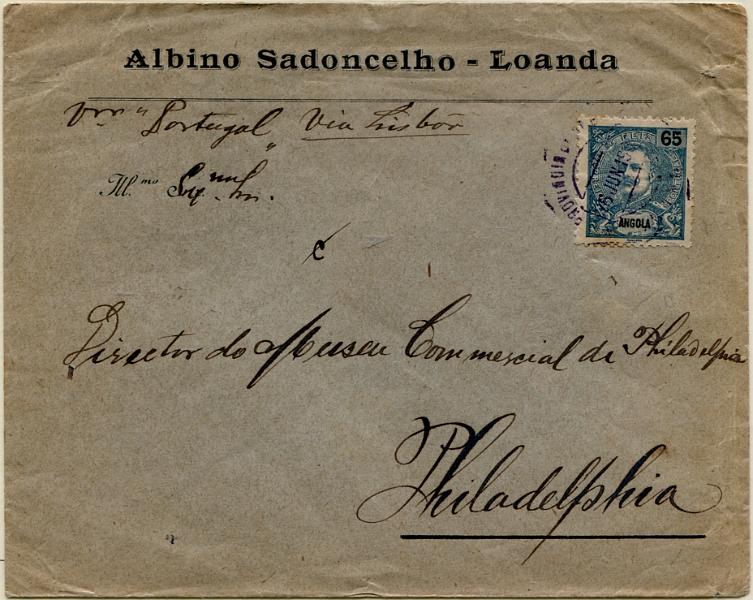 Albino Sadoncelho - Loanda
"Portugal" Via Lisbôa
Ill.mo
65
ANGOLA
Director do Museu Commercial de Philadelphia
Philadelphia